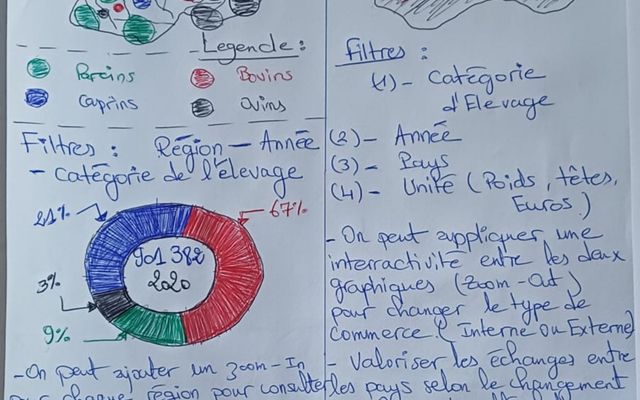 Legende :
Porcins
Bovins
Caprins
Ovins
Filtres : Région - Année
- catégorie de l'élevage
21%
67%
901 382
2020
3%
9%
- On peut ajouter un zoom-In
chaque région pour consulter
Filtres :
(1) - Catégorie
d'Elevage
(2) - Année
(3) - Pays
(4) - Unité (Poids, têtes,
Euros.)
- On peut appliquer une
interractivité entre les deux
graphiques (Zoom-Out)
pour changer le type de
commerce. (Interne ou Externe)
- Valoriser les échanges entre
les pays selon le changement